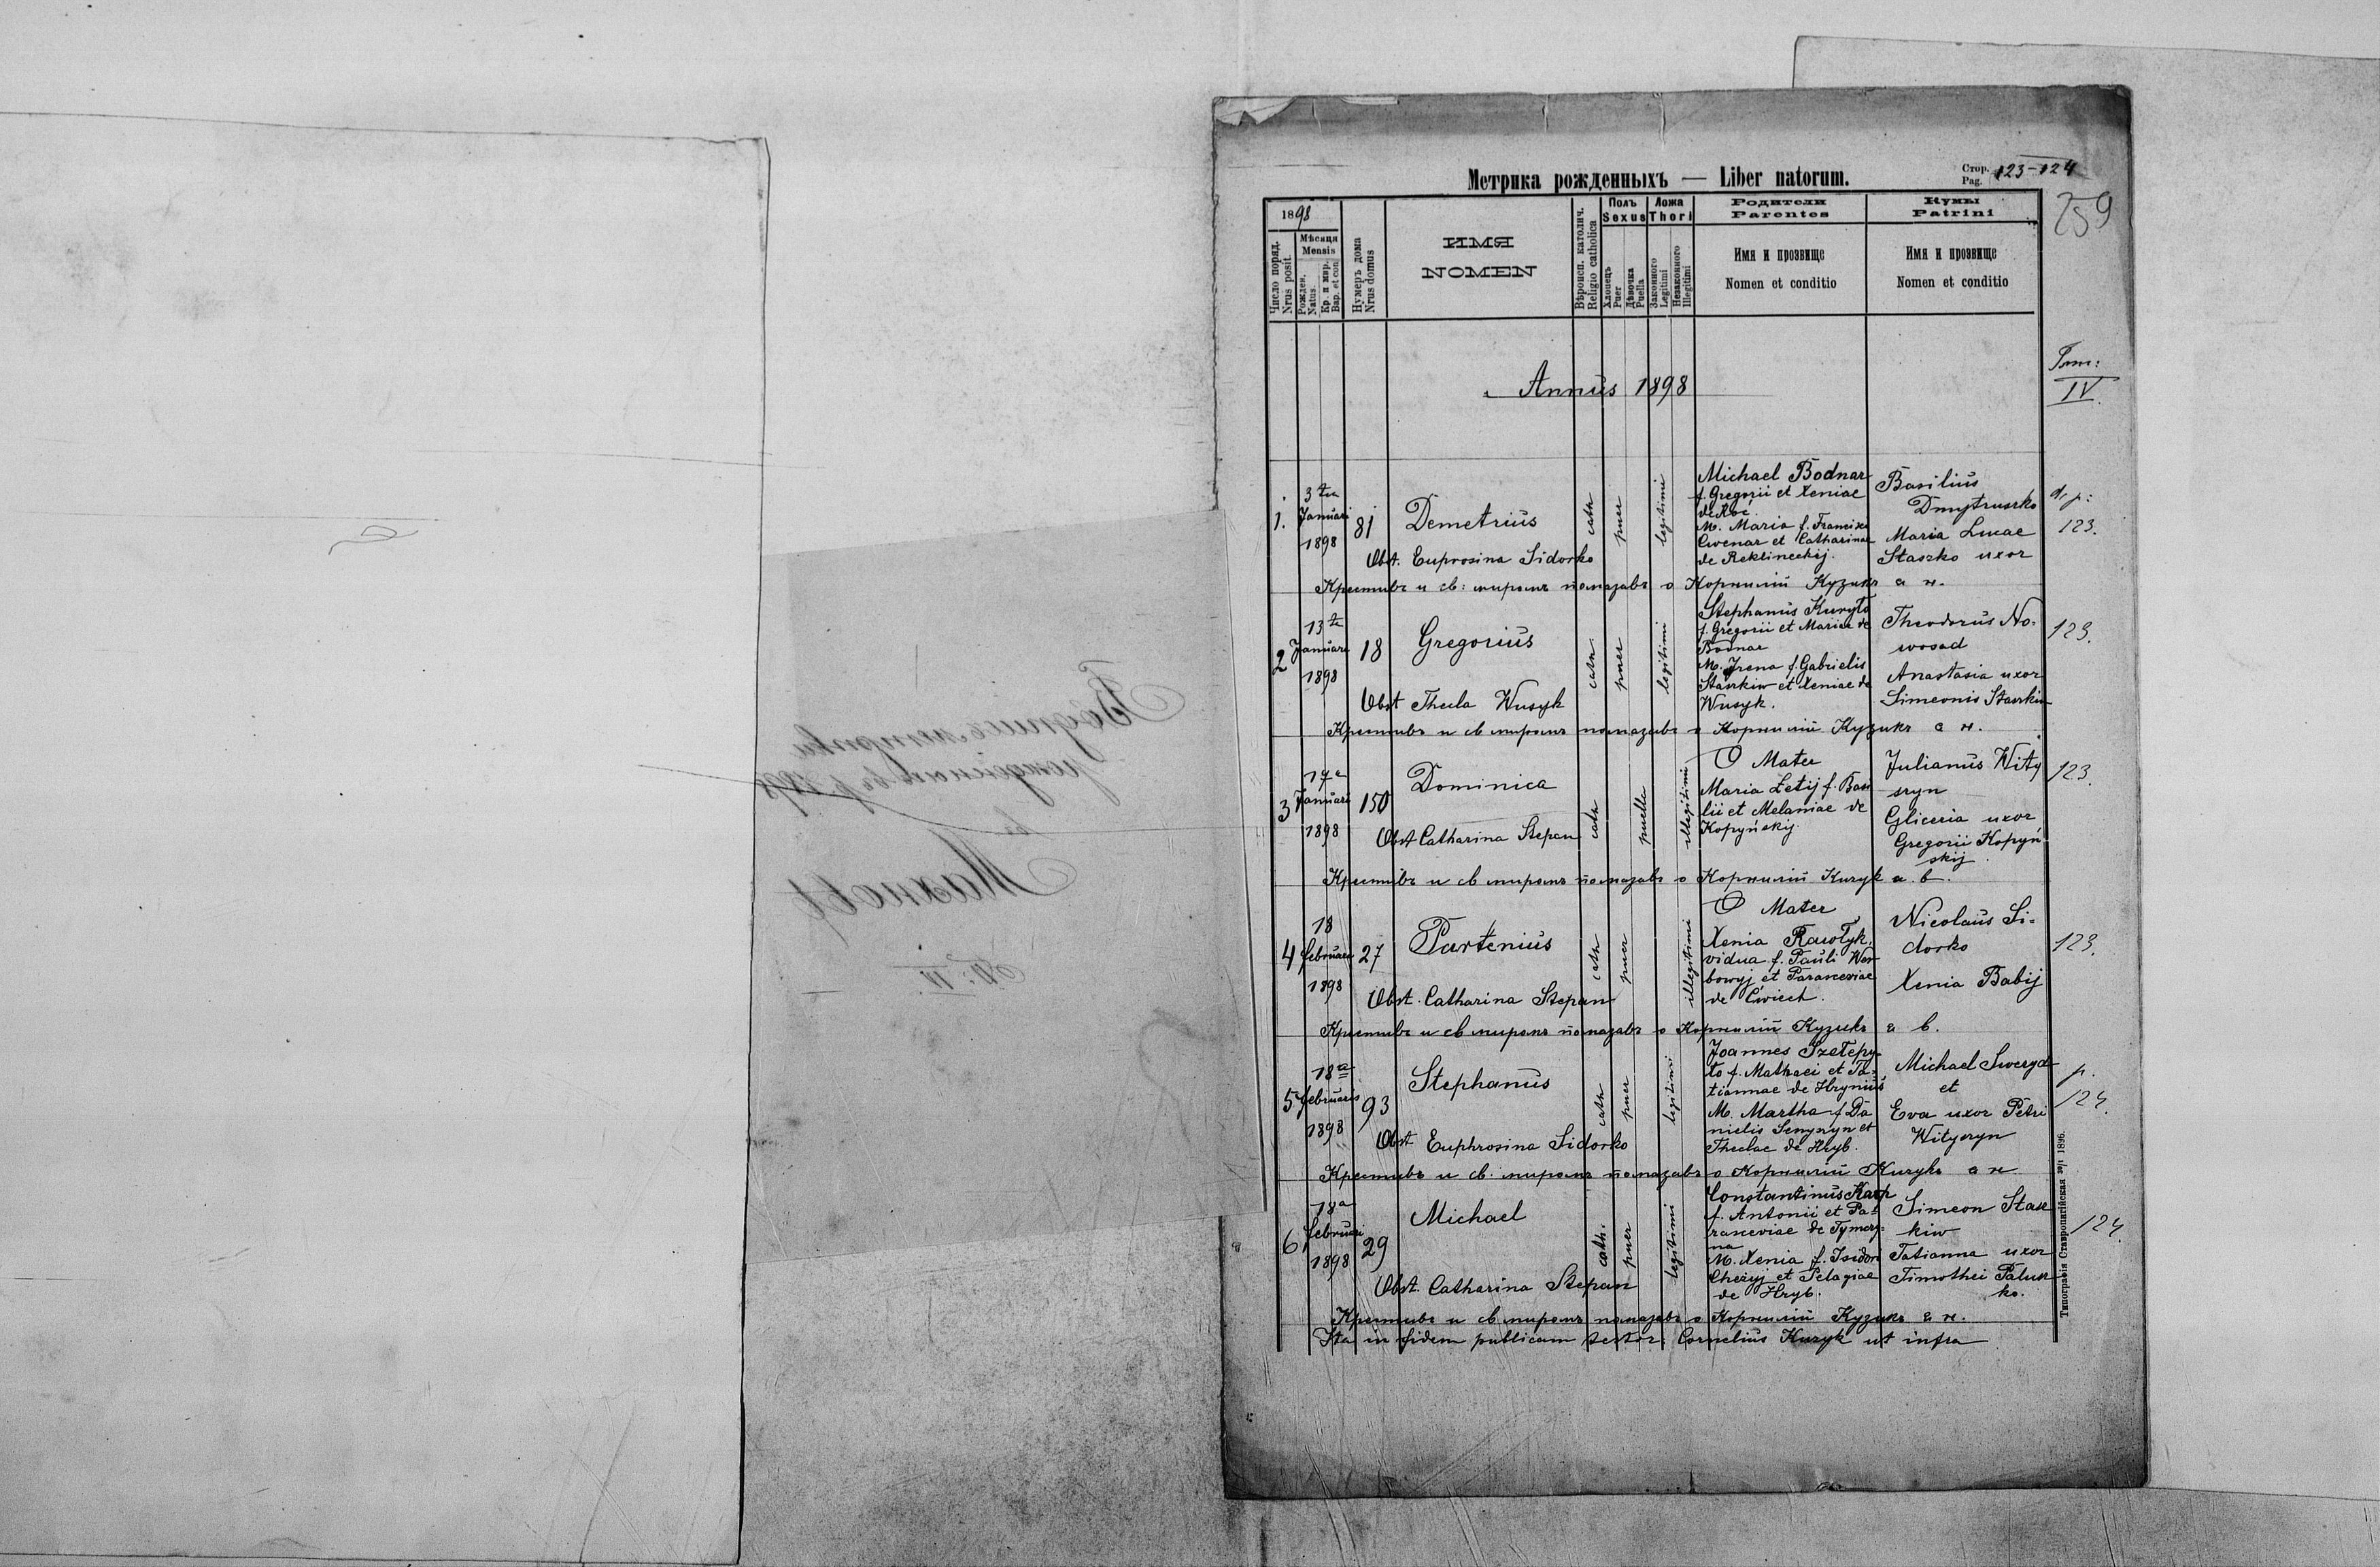 Метрика рожденныхъ — Liber natorum.
Стор. Pag. 123-124
259
1898
Число поряд. Nrus posit
Мѣсяця Mensis
Рожден. Natus
Кр. и мир. Bap. et con.
Нумеръ дома Nrus domus
ИМЯ
NOMEN
Вѣроисп. католич. Religio catholica
Полъ Sexus
Хлопець Puer
Дѣвочка Puella
Ложа Thori
Законного Legitimi
Незаконного Illegitimi
Родители
Parentes
Имя и прозвище
Nomen et conditio
Кумы
Patrini
Имя и прозвище
Nomen et conditio
Tom:
IV.
Annus 1898
1. 3 Januari 1898
81
Demetrius
Obst. Euprosina Sidorko
cath puer legitimi
Michael Bodnar
f. Gregorii et Xeniae
M. Maria f. Francisci
et Catharinae
de Reklineckij.
Basilius
Dmytruszko
Maria Lucae
Staszko uxor
p: 123.
Крестивъ и св: миромъ помазавъ о Корнилій Кузикъ а н.
2 13 Januari 1898
18
Gregorius
Obst Thecla Wusyk
cath puer legitimi
Stephanus Kuryło
f. Gregorii et Mariae de
Bodnar
M. Irena f. Gabrielis
Staszkiw et Xeniae de
Wusyk.
Theodorus No-
wosad
Anastasia uxor
Simeonis Staszkiw
123.
Крестивъ и св миромъ помазавъ о Корнилій Кузикъ а н.
3 17a Januari 1898
150
Dominica
Obst Catharina Stepan
cath puella illegitimi
Mater
Maria Letij f. Basi
lii et Melaniae de
Kopyńskij
Julianus Wity
sryn
Gliceria uxor
Gregorii Kopyń
skij.
123.
Крестивъ и св миромъ помазавъ о Корнилій Kuzyk а. в.
4 18 Februari 1898
27
Partenius
Obst. Catharina Stepan
cath puer illegitimi
Mater
Xenia
vidua f. Pauli Wer
bowyj et Parasceviae
de Ćwiech.
Nicolaus Si-
dorko
Xenia Babij
123.
Крестивъ и св миромъ помазавъ о Корнилій Кузикъ а в.
5 18a Februaris 1898
93
Stephanus
Obst. Euphrosina Sidorko
cath puer legitimi
Joannes Szełepy-
ło f. Mathaei et Ta-
tiannae de Hryniuś
M. Martha f. Da
nielis et
Theclae de Hryb.
Michael Sweryd
et
Eva uxor Petri
Wityszyn
p. 124.
Крестивъ и св. миромъ помазавъ о Корнилій Kuzykъ а н
6 18a Februari 1898
29
Michael
Obst. Catharina Stepan
cath. puer legitimi
Constantinus Karp
f. Antonii et Pa-
rasceviae de Tymczy-
na
M. Xenia f. Isidori
et Pelagiae
de Hryb.
Simeon Stasz
kiw
Tatianna uxor
Timothei Palusz
ko.
124.
Крестивъ и св миромъ помазавъ о Корнилій Кузикъ а н.
Ita in fidem publicam testor: Cornelius Kuzyk ut infra
Типографія Ставропигійская 1896.